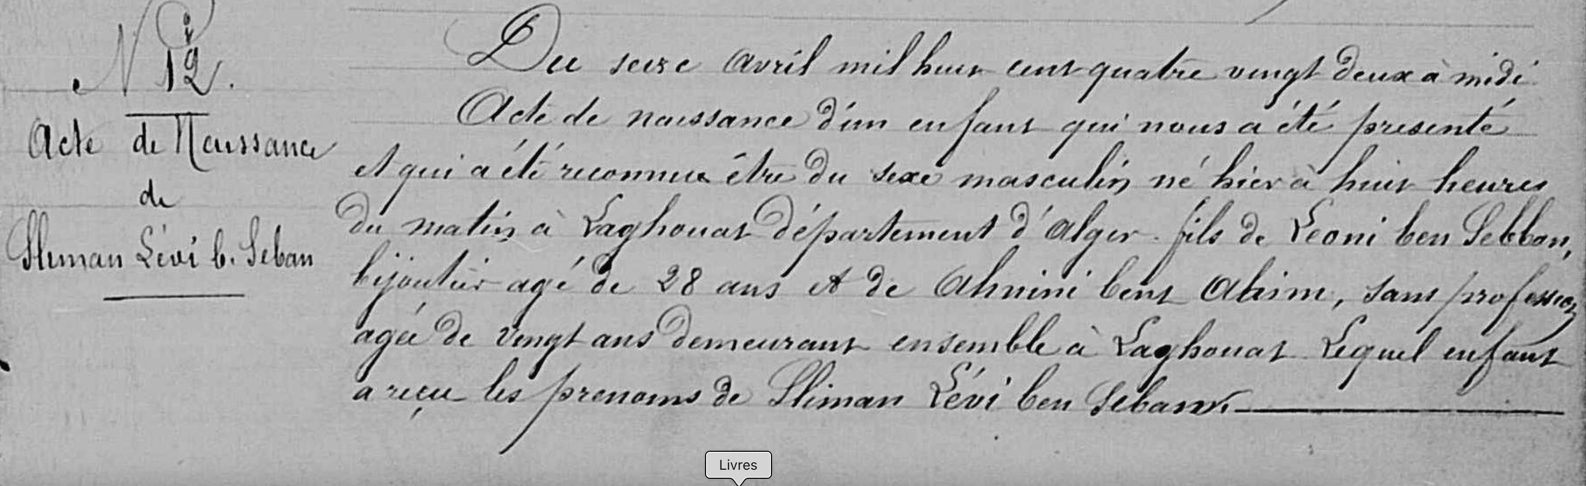 N° 12.
Acte de Naissance
de
Sliman Lévi b. Seban
Du seize Avril mil huit cent quatre vingt deux à midi
Acte de naissance d'un enfant qui nous a été présenté
et qui a été reconnu être du sexe masculin né hier à huit heures
du matin à Laghouat département d'Alger. fils de Léoni ben Sebban,
bijoutier agé de 28 ans et de Ahnini bent Ahim, sans profession
agée de vingt ans demeurant ensemble à Laghouat Lequel enfant
a reçu les prenoms de Sliman Lévi ben Seban.
Livres